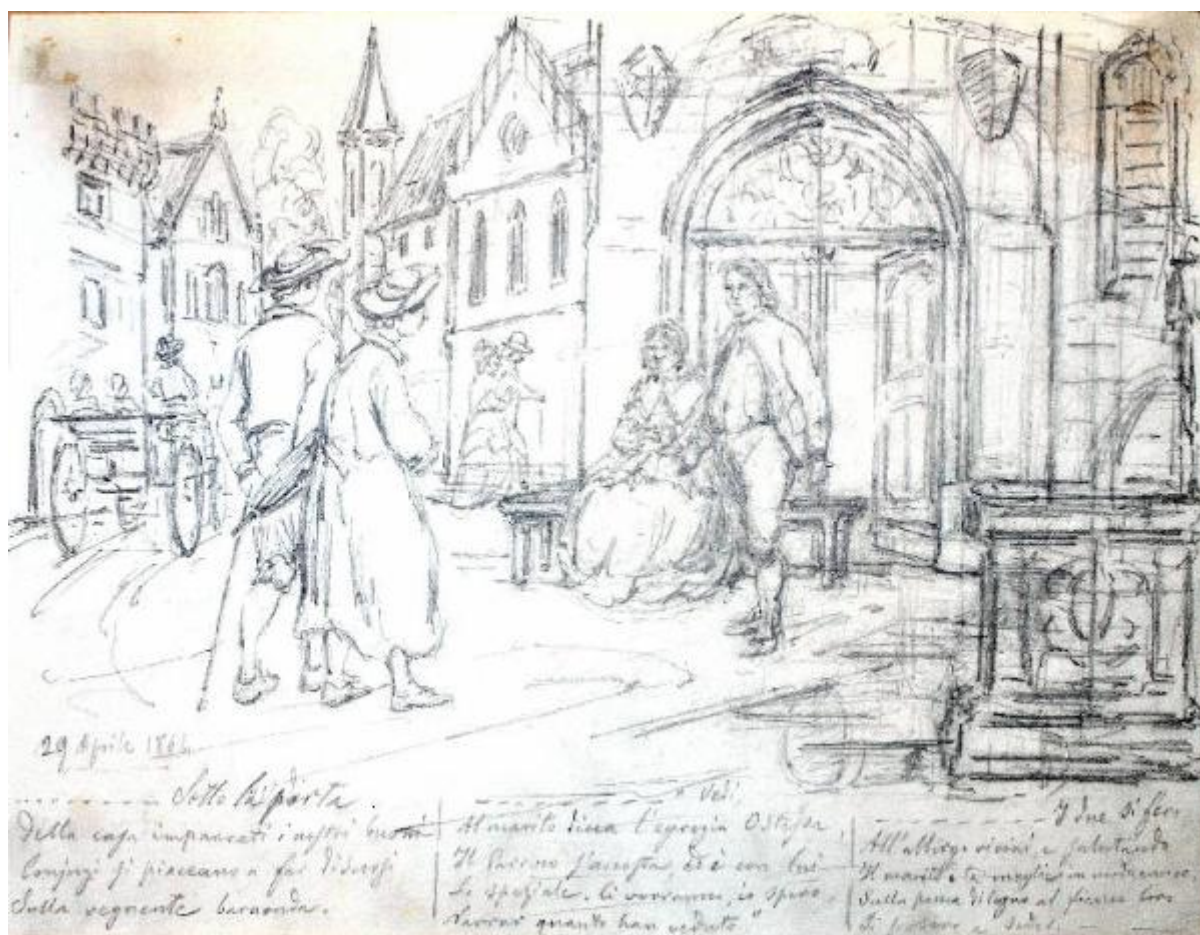 29 Aprile
Sotto la porta
Della casa i nostri buoni
Conjugi si piaceano a far discorsi
Sulla vegnente baraonda.
"Vedi
Al marito dicea l'egregia Ostessa
Il Parroco s'accosta, ed è con lui
Lo speziale. Ci vorranno, io spero,
Narrar quanto han veduto"
I due si fero
All'albergo vicini, e salutando
Il marito e la moglie in
Sulla panca di legno al fianco loro
Si posero a seder.